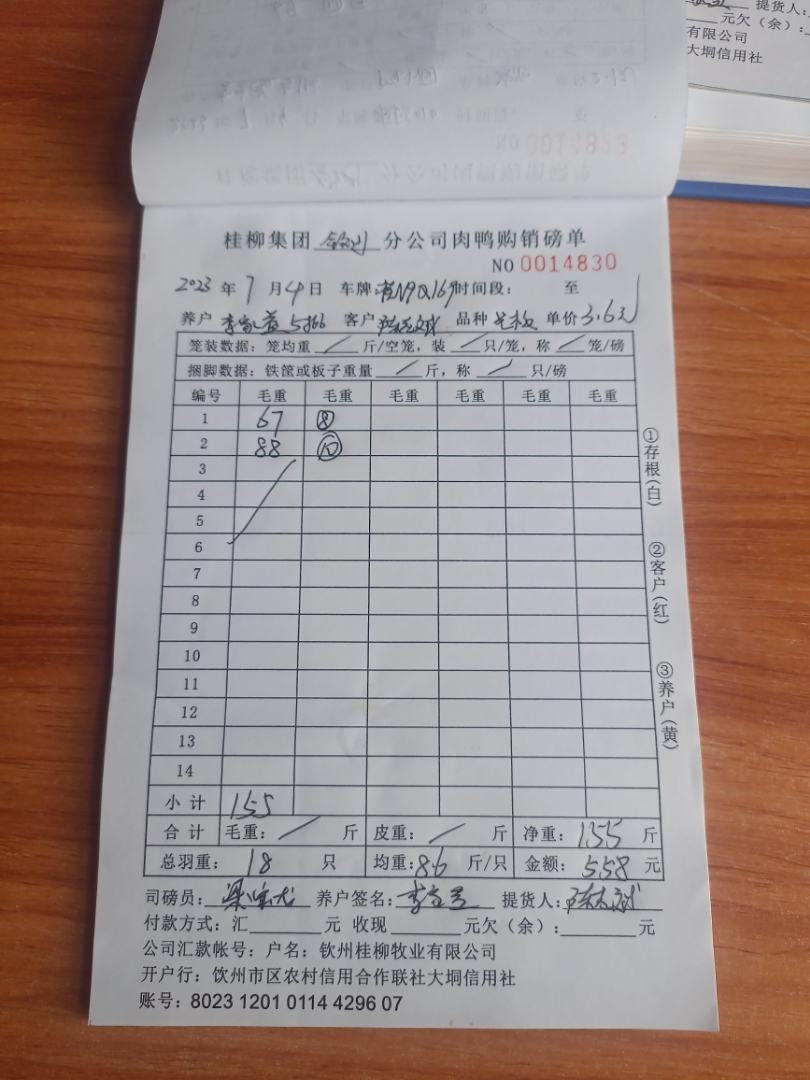 提货人:
元欠（余）:
有限公司
大垌信用社
0014829
桂柳集团 钦州 分公司肉鸭购销磅单
NO 0014830
2023 年 7 月 4 日 车牌: 时间段: 至
养户 客户 品种 单价 3.6元
笼装数据: 笼均重 / 斤/空笼，装 / 只/笼，称 / 笼/磅
捆脚数据: 铁筐或板子重量 / 斤，称 / 只/磅
编号 毛重 毛重 毛重 毛重 毛重 毛重
1 67 ⑧
2 88 ⑩
3
4
5
6
7
8
9
10
11
12
13
14
小计 155
合计 毛重: / 斤 皮重: / 斤 净重: 155 斤
总羽重: 18 只 均重: 8.6 斤/只 金额: 558 元
司磅员: 养户签名: 提货人:
付款方式: 汇 元 收现 元欠（余）: 元
公司汇款帐号: 户名: 钦州桂柳牧业有限公司
开户行: 钦州市区农村信用合作联社大垌信用社
账号: 8023 1201 0114 4296 07
①存根(白)
②客户(红)
③养户(黄)